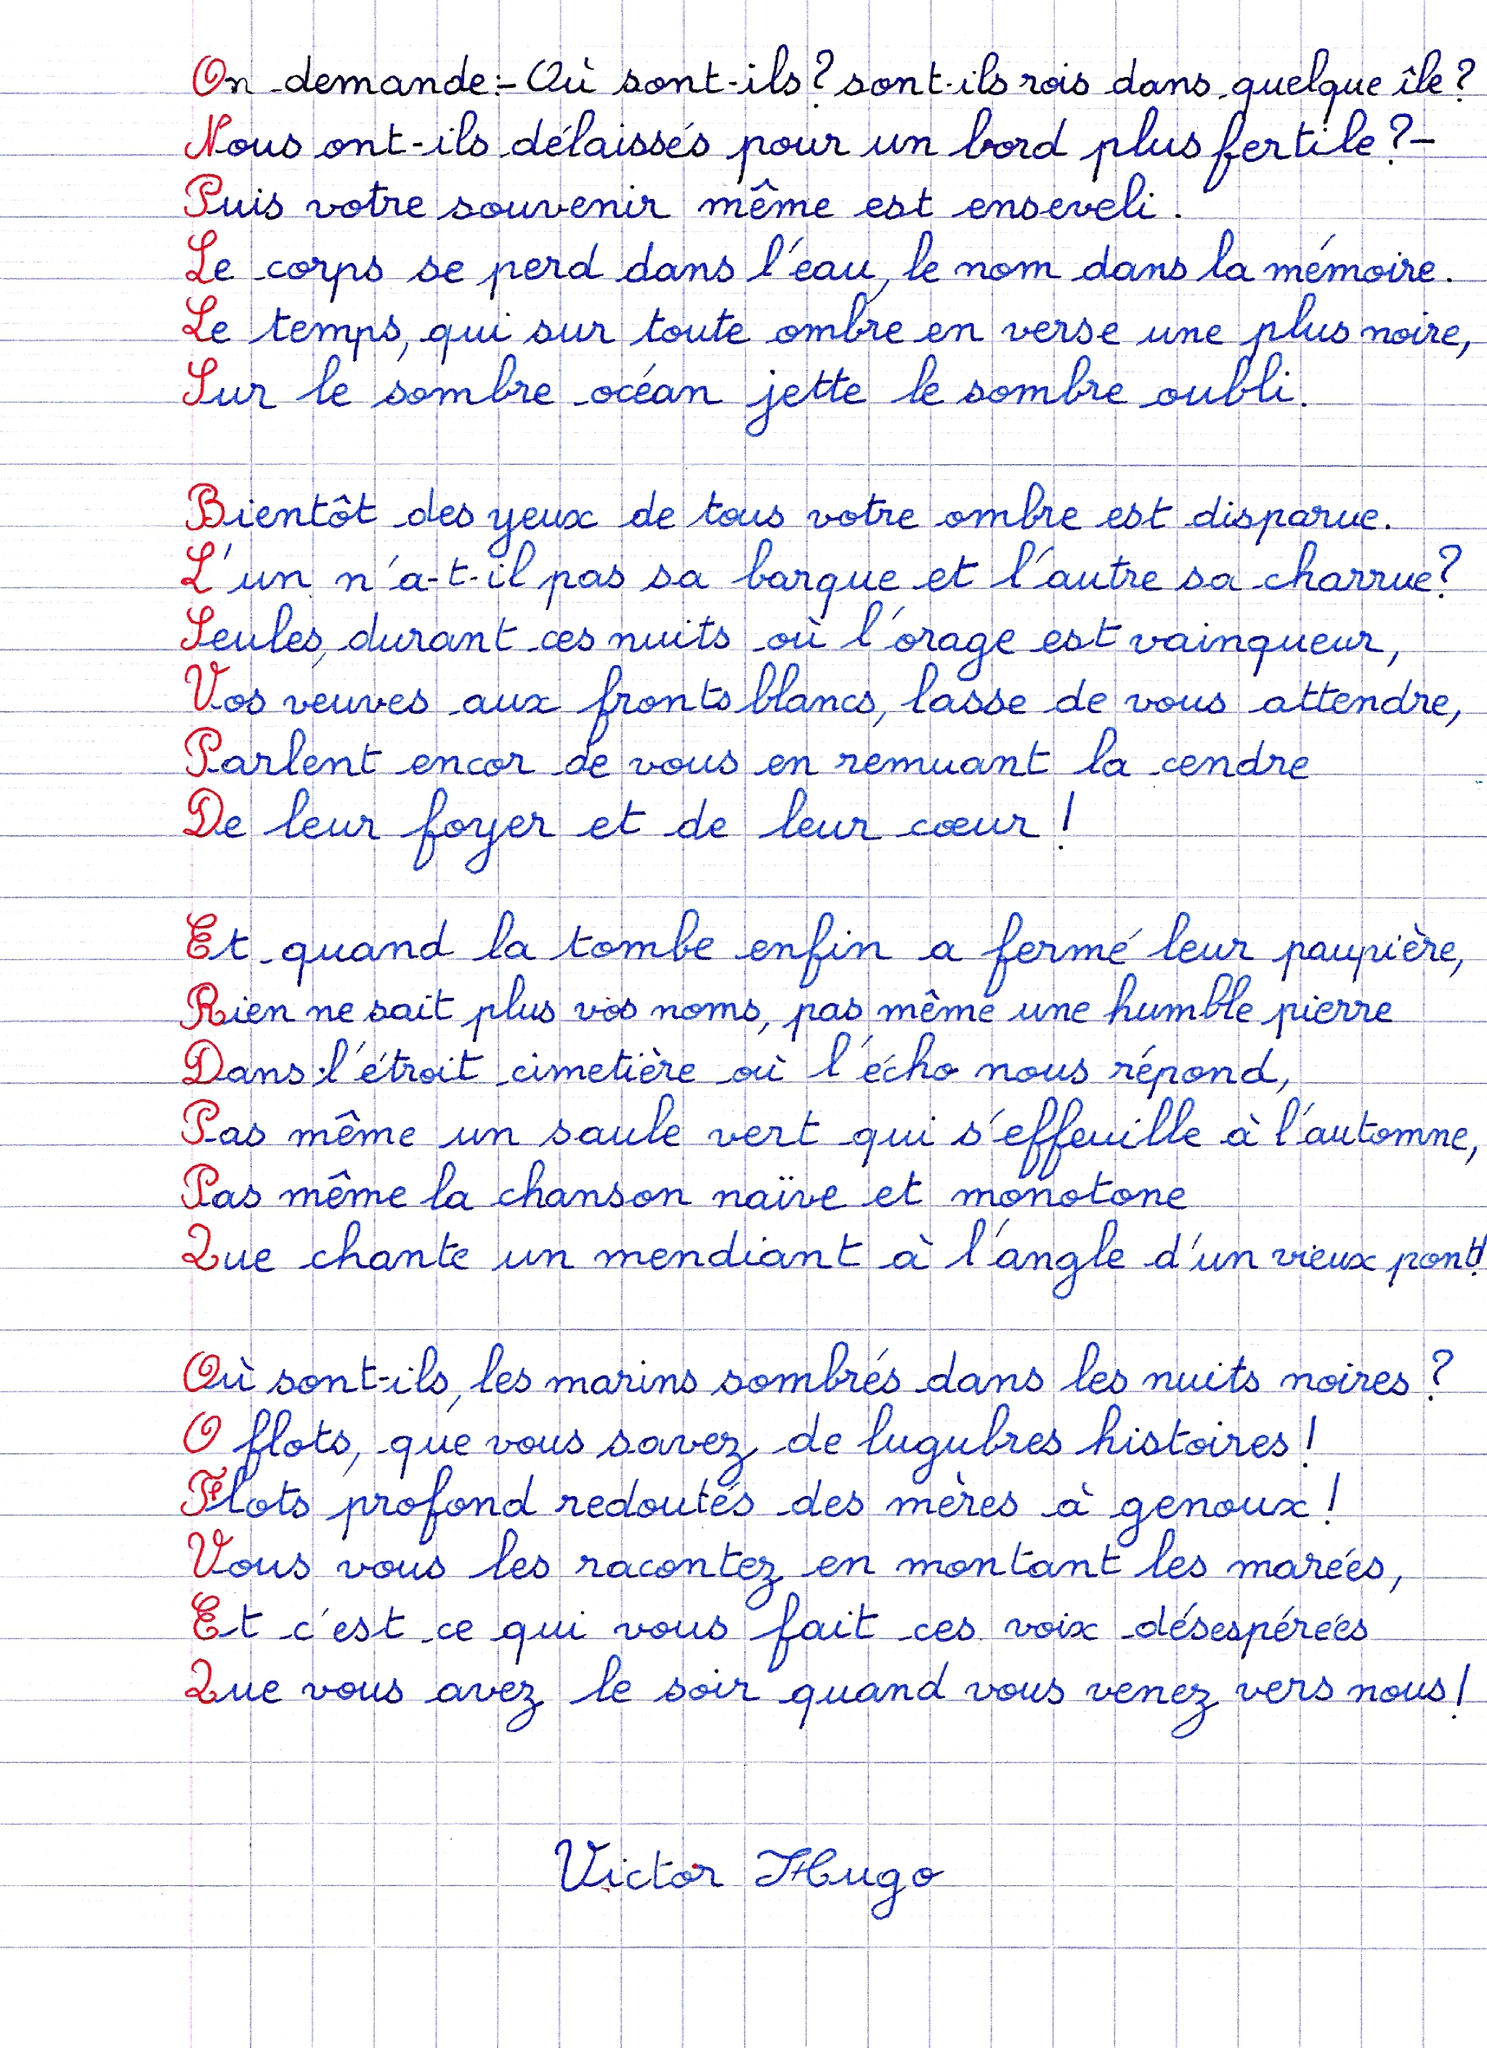 On demande:- Où sont-ils? sont-ils rois dans quelque île?
Nous ont-ils délaissés pour un bord plus fertile?-
Puis votre souvenir même est enseveli.
Le corps se perd dans l'eau, le nom dans la mémoire.
Le temps, qui sur toute ombre en verse une plus noire,
Sur le sombre océan jette le sombre oubli.
Bientôt des yeux de tous votre ombre est disparue.
L'un n'a-t-il pas sa barque et l'autre sa charrue?
Seules, durant ces nuits où l'orage est vainqueur,
Vos veuves aux fronts blancs, lasse de vous attendre,
Parlent encor de vous en remuant la cendre
De leur foyer et de leur cœur !
Et quand la tombe enfin a fermé leur paupière,
Rien ne sait plus vos noms, pas même une humble pierre
Dans l'étroit cimetière où l'écho nous répond,
Pas même un saule vert qui s'effeuille à l'automne,
Pas même la chanson naïve et monotone
Que chante un mendiant à l'angle d'un vieux pont!
Où sont-ils, les marins sombrés dans les nuits noires ?
O flots, que vous savez de lugubres histoires !
Flots profond redoutés des mères à genoux !
Vous vous les racontez en montant les marées,
Et c'est ce qui vous fait ces voix désespérées
Que vous avez le soir quand vous venez vers nous !
Victor Hugo